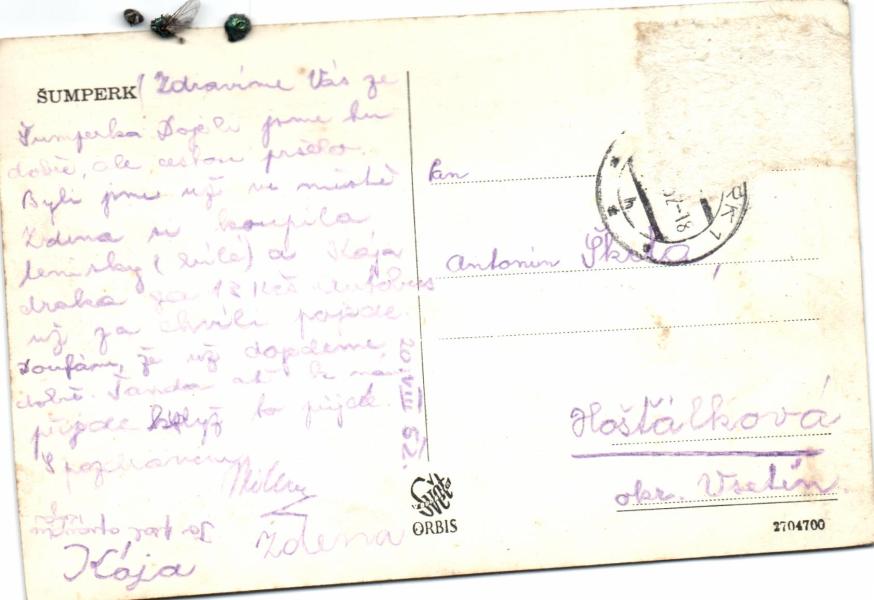 ŠUMPERK
Zdravíme Vás ze
Šumperka Dojeli jsme sem
dobře, ale cestou pršelo.
Byli jsme už ve městě
Zdena si koupila
tenisky (bílé) a Kája
draka za 12 Kčs Autobus
už za chvíli pojede.
Doufám, že už dojedeme
dobře. Fanda ať k nám
přijede když to půjde.
S pozdravem
Zdena
Kája
20. VIII 62.
Pan
Antonín Škrla,
Hošťálková
okr. Vsetín.
RK 1
62-18
h
Svět
ORBIS
2704700